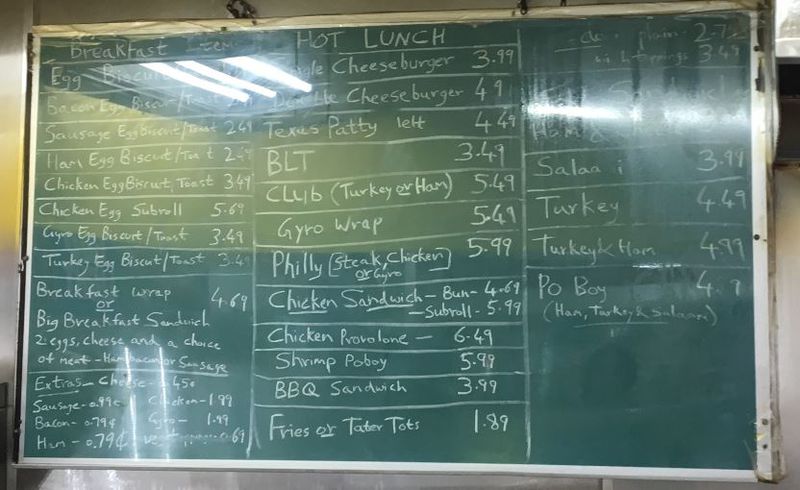 Breakfast Items
Egg Biscuit
Bacon Egg Biscuit/Toast
Sausage Egg Biscuit/Toast 2.49
Ham Egg Biscuit/Toast 2.49
Chicken Egg Biscuit, Toast 3.49
Chicken Egg Subroll 5.69
Gyro Egg Biscuit/Toast 3.49
Turkey Egg Biscuit/Toast 3.49
Breakfast wrap 4.69
or
Big Breakfast Sandwich
2 eggs, cheese and a choice
of meat - Ham bacon or Sausage
Extras - Cheese - 0.45¢
Sausage - 0.99¢ Chicken - 1.99
Bacon - 0.79¢ Gyro - 1.99
Ham - 0.79¢ 0.69
HOT LUNCH
Cheeseburger 3.99
Double Cheeseburger 4.9
Texas Patty Melt 4.49
BLT 3.49
Club (Turkey or Ham) 5.49
Gyro Wrap 5.49
Philly [Steak, Chicken] 5.99
or Gyro
Chicken Sandwich - Bun - 4.69
- Subroll - 5.99
Chicken Provolone - 6.49
Shrimp Poboy 5.99
BBQ Sandwich 3.99
Fries or Tater Tots 1.89
plain - 2.7
3.49
Ham
Salaa i 3.99
Turkey 4.49
Turkey & Ham 4.99
Po Boy 4.
(Ham, Turkey & Salaam)